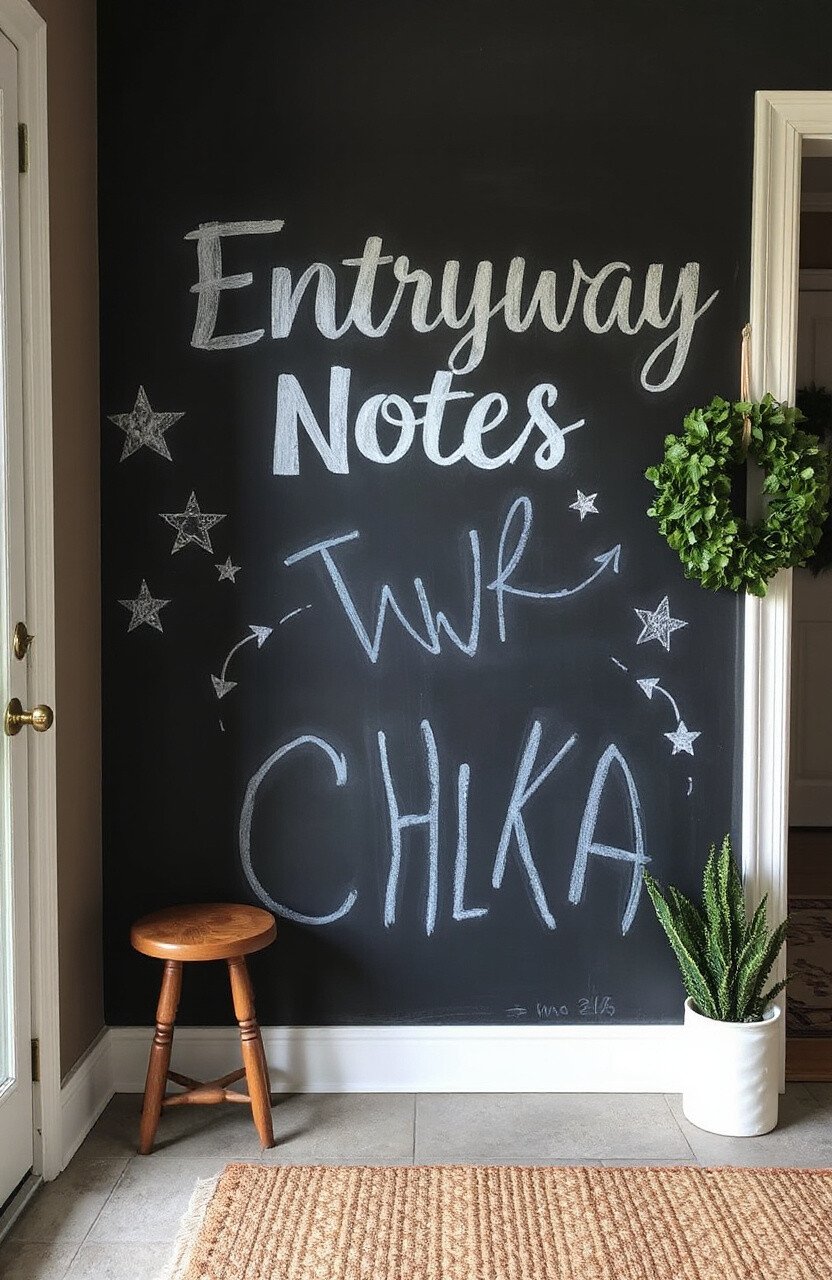 Entryway
Notes
TWR
CHLKA